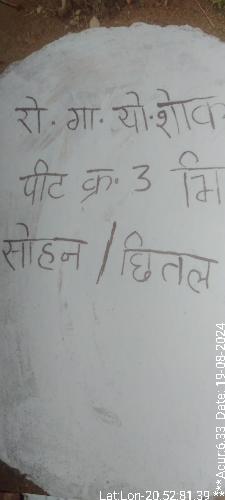 रो. गा. यो. शोव
पीट क्र. 3 मि
सोहन / छितल
Lat:Lon-20.52.81.39
***Acur:6.33 Date: 19-08-2024